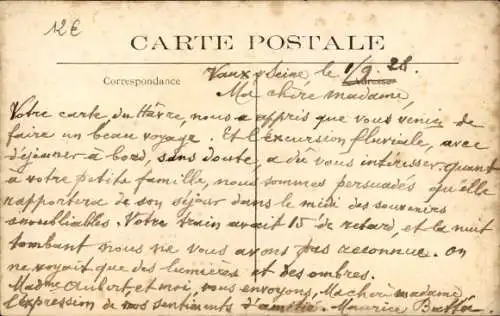 12€
CARTE POSTALE
Correspondance
Vaux s/ Seine le 1/9. 28.
Ma chère madame,
Votre carte du Hâvre, nous a appris que vous venez de
faire un beau voyage. Et l'excursion fluviale, avec
déjeuner à bord, sans doute, a dû vous intéresser. quant
à votre petite famille, nous sommes persuadés qu'elle
rapportera de son séjour dans le midi des souvenirs
inoubliables. Votre train avait 15 de retard, et la nuit
tombant nous ne vous avons pas reconnue. On
ne voyait que des lumières et des ombres.
Madme Aubert et moi, vous envoyons, Ma chère madame
l'expression de nos sentiments d'amitié. Maurice